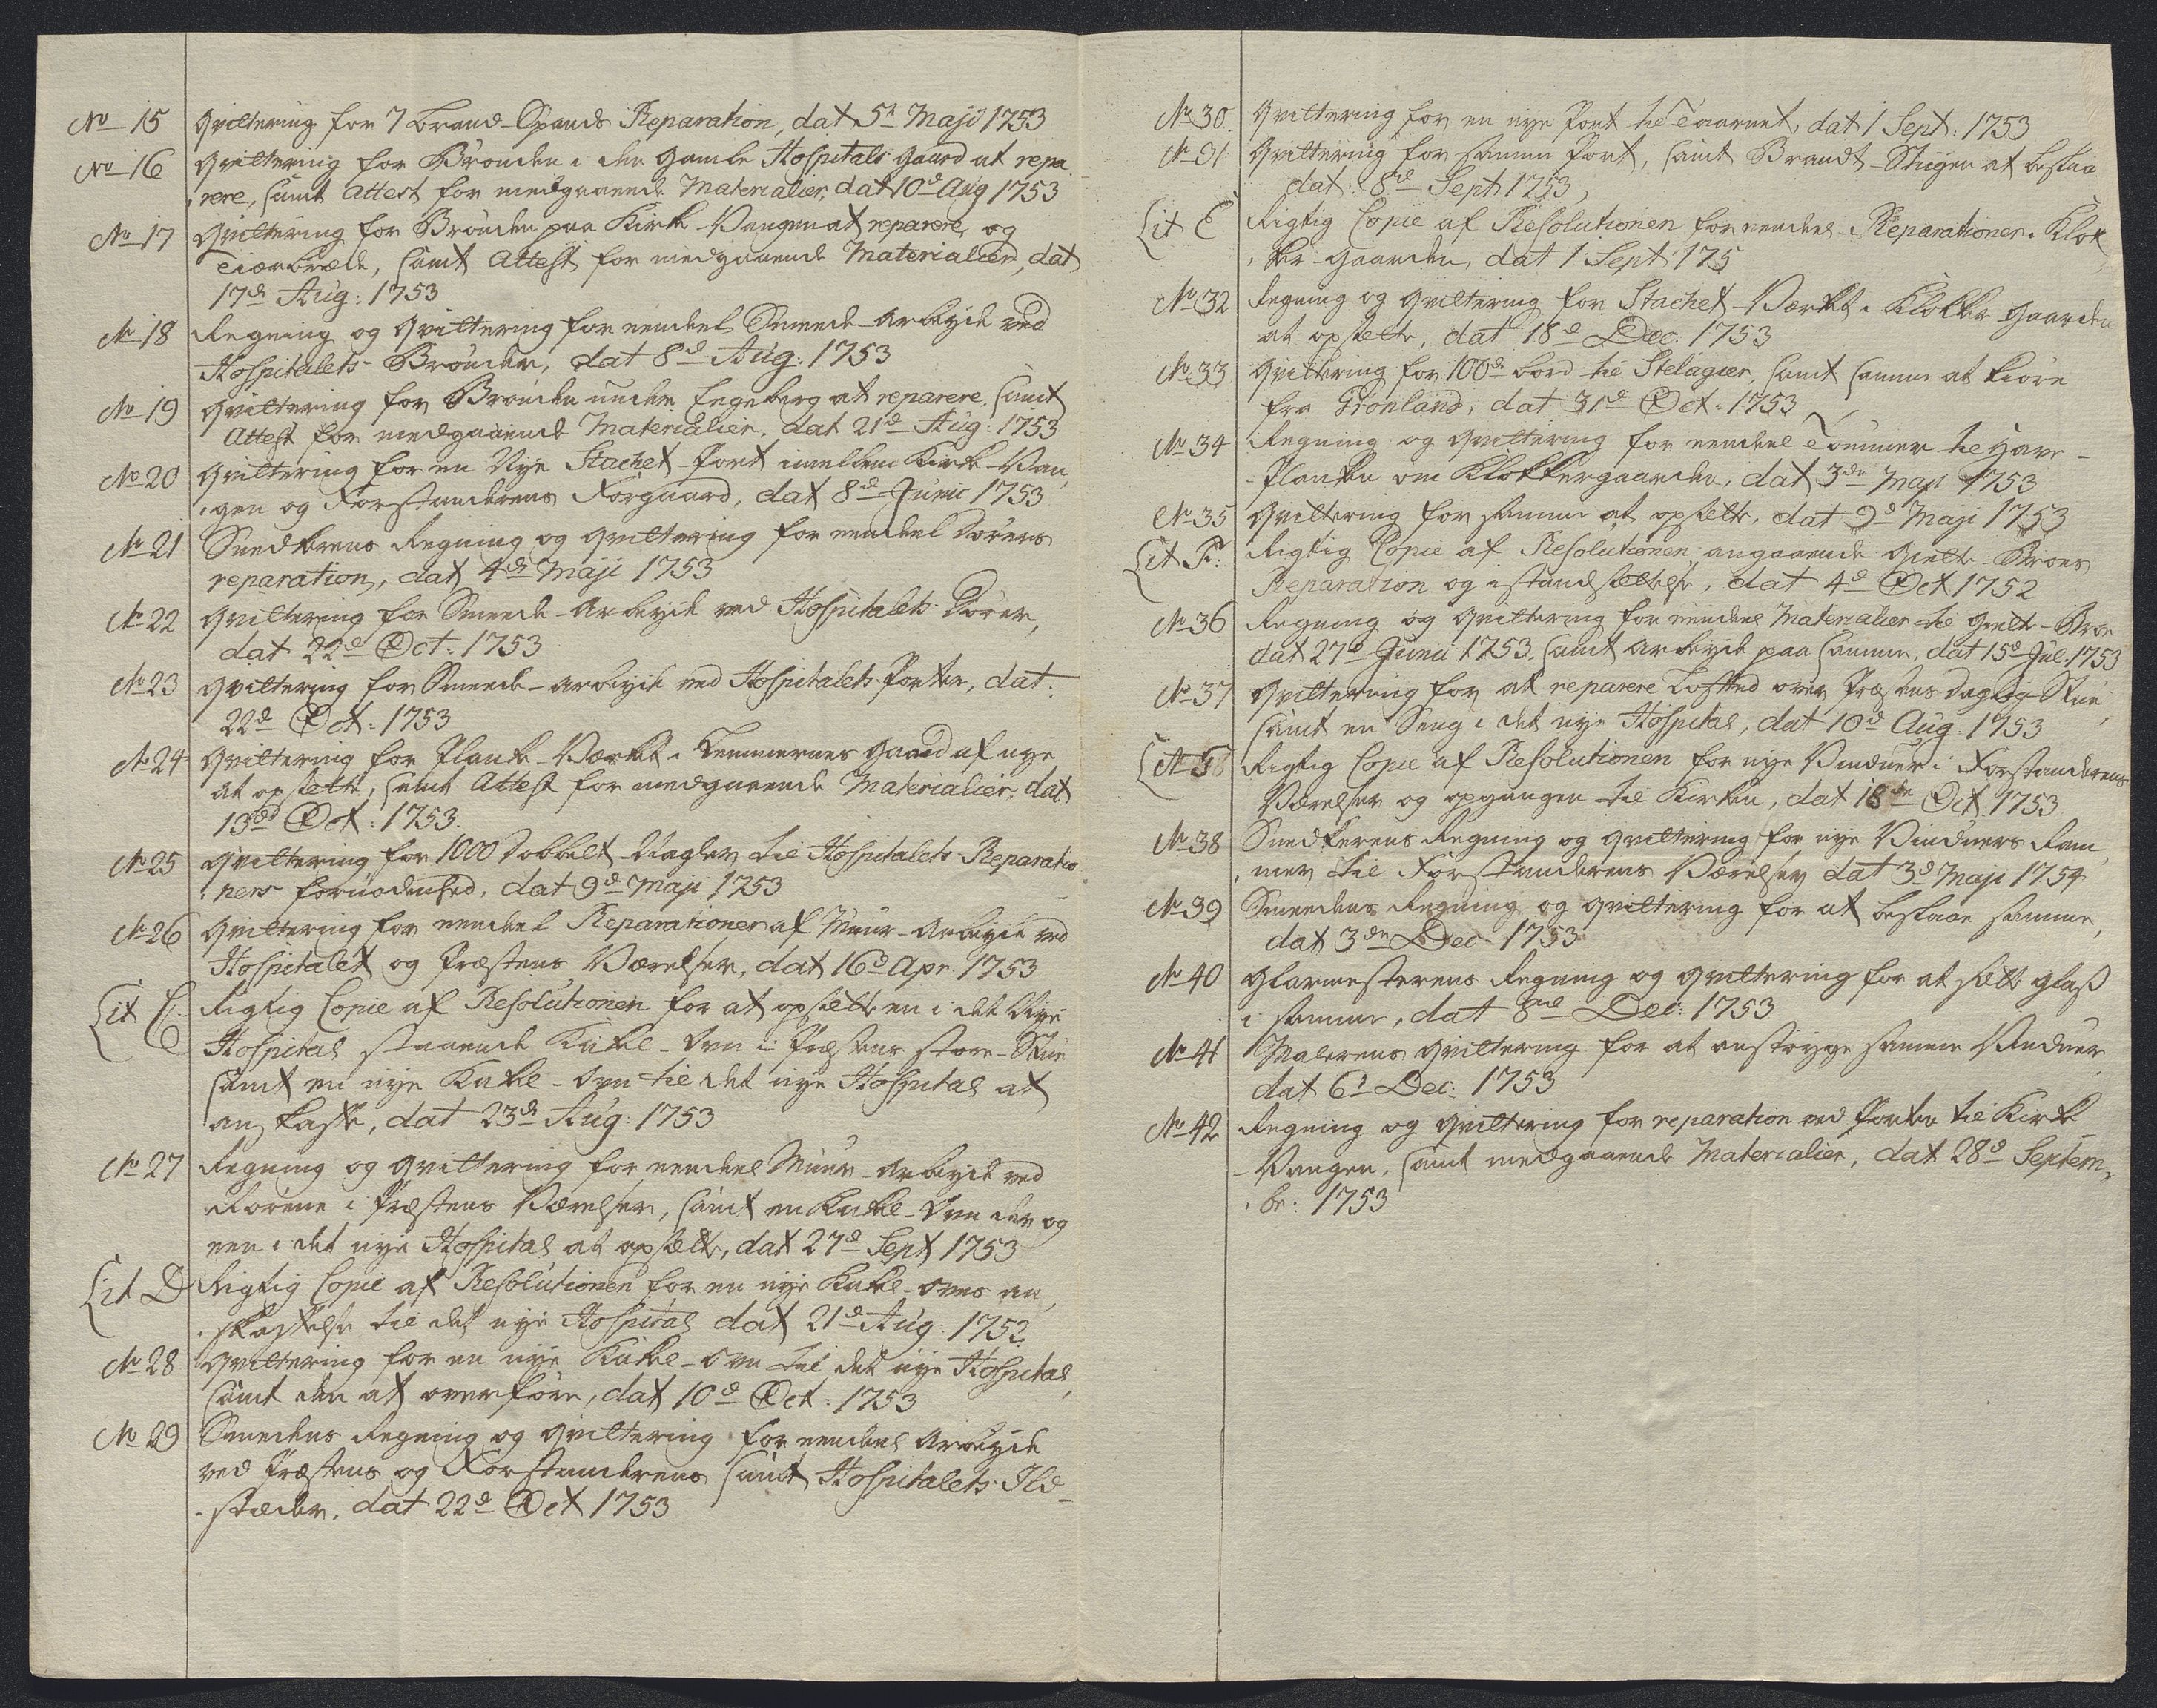 No 15 Qvittering for 7 brand-Spands Reparation, dat 5d Maji 1753
No 16 Qvittering for Brønden i den gamle Hospitals gaard at repa-
rere, samt Attest for medgaaende Materialier, dat 10d Aug 1753
No 17 Qvittering for Brønden paa Kirke-Vangen at reparere, og
samt Attest for medgaaende Materialier, dat
17de Aug: 1753
No 18 Regning og Qvittering for eendeel Smede-arbeyde ved
Hospitalets-Brønder, dat 8d Aug: 1753
No 19 Qvittering for Brønden under Egeberg at reparere, samt
Attest for medgaaende Materialier, dat 21d Aug: 1753
No 20 Qvittering for en Nye Stachet-Port imellem Kirke-Van-
gen og Forstanderens Forgaard, dat 8d Junii 1753
No 21 Snedkerens Regning og Qvittering for eendeel Dørers
reparation, dat 4de Maji 1753
No 22 Qvittering for Smede-arbeyde ved Hospitalets Dører,
dat 22d Oct: 1753
No 23 Qvittering for Smede-arbeyde ved Hospitalets Porter, dat:
22d Oct: 1753
No 24 Qvittering for Planke-Værket i Lemmernes Gaard af nye
at opsætte, samt Attest for medgaaende Materialier, dat
13de Oct: 1753.
No 25 Qvittering for 1000 dobbelt Nagler til Hospitalets Reparatio-
ners fornødenhed, dat 9d Maji 1753
No 26 Qvittering for eendeel Reparationer af Muur-Arbeyde ved
Hospitalet og Præstens Værelser, dat 16d Apr. 1753
Lit C. Rigtig Copie af Resolutionen for at opsætte en i det Nye
Hospital staaende Kakel-Ovn i Præstens store-Stue
samt en nye Kakel-Ovn til det nye Hospital at
anskaffe, dat 23de Aug: 1753
No 27 Regning og Qvittering for eendeel Muur-arbeyde ved
i Præstens Værelser, samt en Kakel-Ovn der og
een i det nye Hospital at opsætte, dat 27d Sept 1753
Lit D Rigtig Copie af Resolutionen for en nye Kakel-Ovns an-
skaffelse til det nye Hospital dat 21d Aug: 1752
No 28 Qvittering for en nye Kakel-Ovn til det nye Hospital,
samt den at overføre, dat 10d Oct: 1753
No 29 Smedens Regning og Qvittering for eendeel Arbeyde
ved Præstens og Forstanderens samt Hospitalets Ild-
stæder, dat 22d Oct 1753
No 30 Qvittering for en nye Port til Taarnet, dat 1 Sept: 1753
No 31 Qvittering for samme Port, samt Brandt-Stigen at beslaa
dat: 8de Sept 1753,
Lit E Rigtig Copie af Resolutionen for eendeel Reparationer i Klok-
ker-gaarden, dat 1 Sept 175
No 32 Regning og Qvittering for Stachet-Værket i Klokker Gaarden
at opsette, dat 18d Dec: 1753
No 33 Qvittering for 100de bord til Stelagier, samt samme at kiøre
fra Grønland, dat 31d Oct: 1753
No 34 Regning og Qvittering for eendeel Tømmer til Have-
Planken om Klokkergaarden, dat 3de Maji 1753
No 35 Qvittering for samme at opsette, dat 9d Maji 1753
Lit F: Rigtig Copie af Resolutionen angaaende Broes
Reparation og istandsættelse, dat 4d Oct 1752
No 36 Regning og Qvittering for eendeel Materialier til
dat 27d Junii 1753, samt arbeyde paa samme, dat 15d Jul: 1753
No 37 Qvittering for at reparere Lofted over Præstens daglig-Stue,
samt en Seng i det nye Hospital, dat 10d Aug: 1753
Lit G Rigtig Copie af Resolutionen for nye Vinduer i Forstanderens
Værelser og opgangen til Kirken, dat 18de Oct 1753
No 38 Snedkerens Regning og Qvittering for nye Vinduers Ram-
mer til Forstanderens Værelser dat 3d Maji 1754
No 39 Smedens Regning og Qvittering for at beslaae samme,
dat 3de Dec: 1753
No 40 Glarmesterens Regning og Qvittering for at sætte glass
i samme, dat 8de Dec: 1753
No 41 Malerens Qvittering for at anstryge samme Vinduer
dat 6d Dec: 1753
No 42 Regning og Qvittering for reparation ved Porten til Kirke-
Vangen, samt medgaaende Materialier, dat 28d Septem-
br: 1753